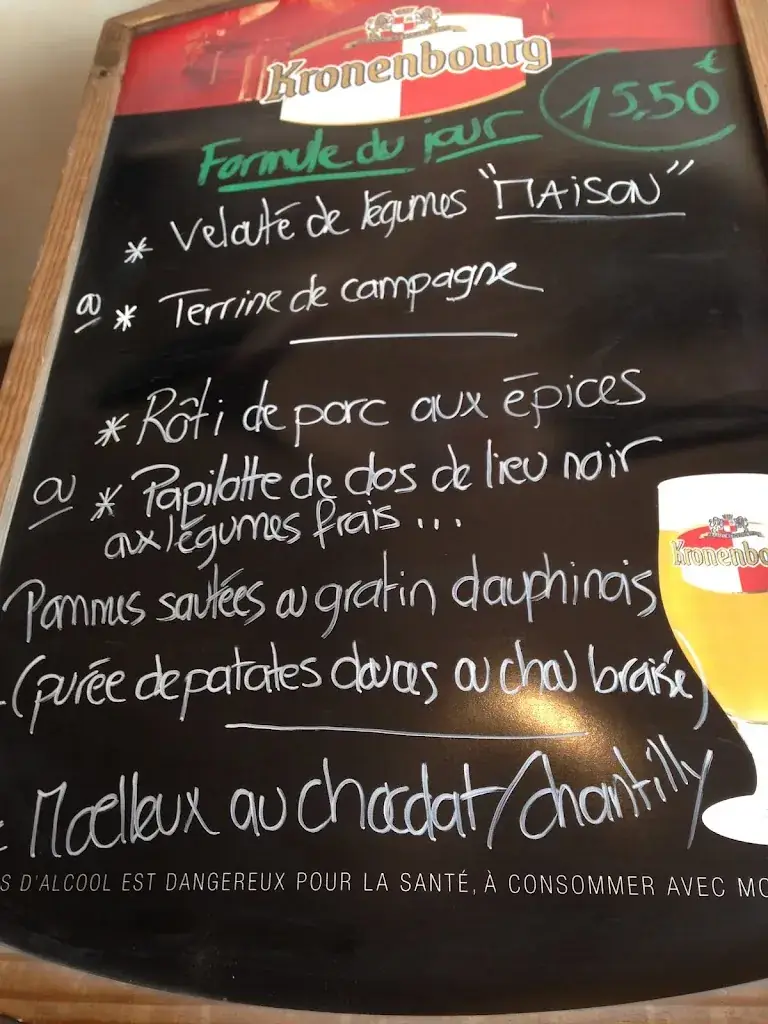 Kronenbourg
Formule du jour 15,50 €
* Velouté de légumes "MAISON"
ou * Terrine de campagne
* Rôti de porc aux épices
ou * Papillotte de dos de lieu noir
aux légumes frais ...
Pommes sautées ou gratin dauphinois
(purée de patates douces ou chou braisé)
Moelleux au chocolat/Chantilly
Kronenbo
S D'ALCOOL EST DANGEREUX POUR LA SANTÉ, À CONSOMMER AVEC MO